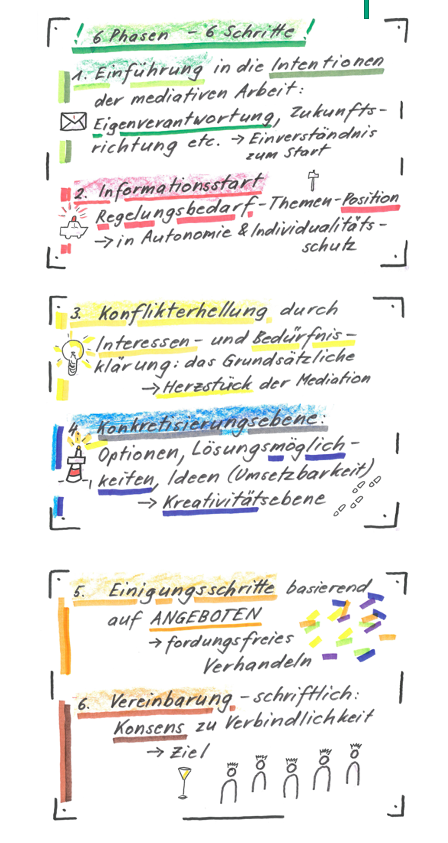 ! 6 Phasen - 6 Schritte !
1. Einführung in die Intentionen
der mediativen Arbeit:
Eigenverantwortung, Zukunfts-
richtung etc. → Einverständnis
zum Start
2. Informationsstart
Regelungsbedarf - Themen - Position
→ in Autonomie & Individualitäts-
schutz
3. Konflikterhellung durch
Interessen- und Bedürfnis-
klärung: das Grundsätzliche
→ Herzstück der Mediation
4. Konkretisierungsebene:
Optionen, Lösungsmöglich-
keiten, Ideen (Umsetzbarkeit)
→ Kreativitätsebene
5. Einigungsschritte basierend
auf ANGEBOTEN
→ fordungsfreies
Verhandeln
6. Vereinbarung - schriftlich:
Konsens zu Verbindlichkeit
→ Ziel